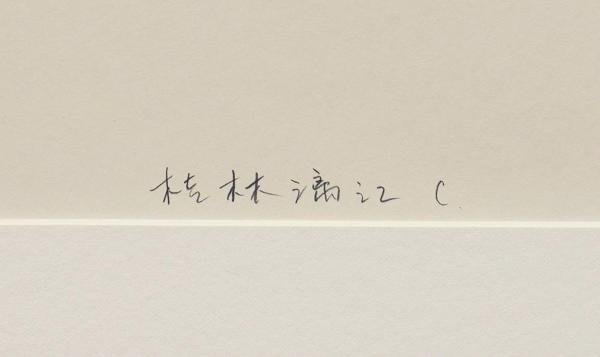 桂林漓江 C.